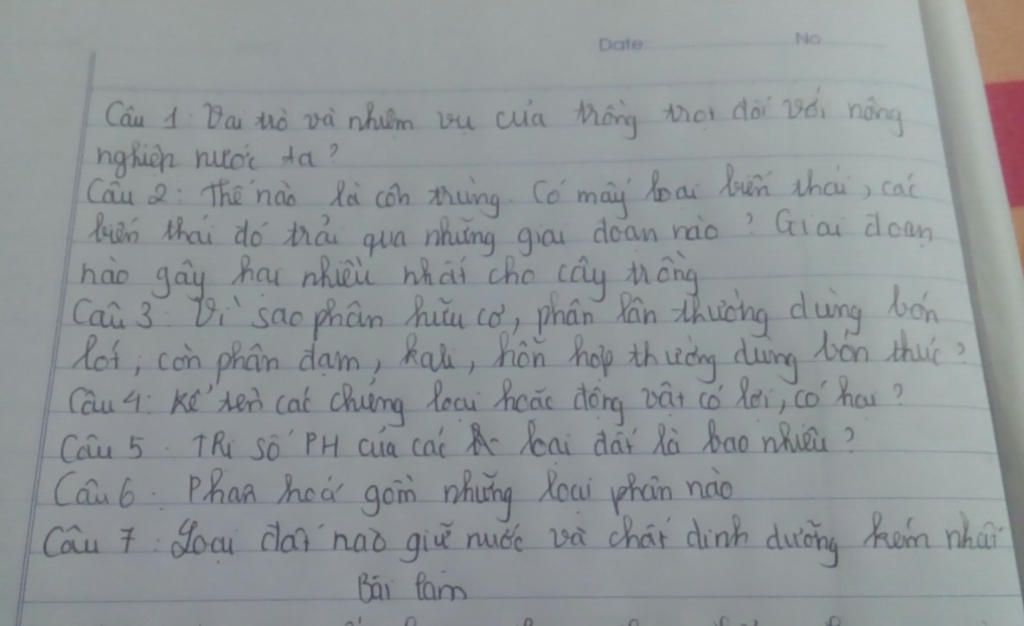 Date: No
Câu 1: Vai trò và nhiệm vụ của trồng trọt đối với nông
nghiệp nước ta?
Câu 2: Thế nào là côn trùng. Có mấy loại biến thái, các
biến thái đó trải qua những giai đoạn nào? Giai đoạn
nào gây hại nhiều nhất cho cây trồng
Câu 3: Vì sao phân hữu cơ, phân lân thường dùng bón
lót, còn phân đạm, kali, hỗn hợp thường dùng bón thúc?
Câu 4: Kể tên các chủng loại hoặc động vật có lợi, có hại?
Câu 5: Trị số PH của các loại đất là bao nhiêu?
Câu 6: Phân hoá gồm những loại phân nào
Câu 7: Loại đất nào giữ nước và chất dinh dưỡng kém nhất
Bài làm